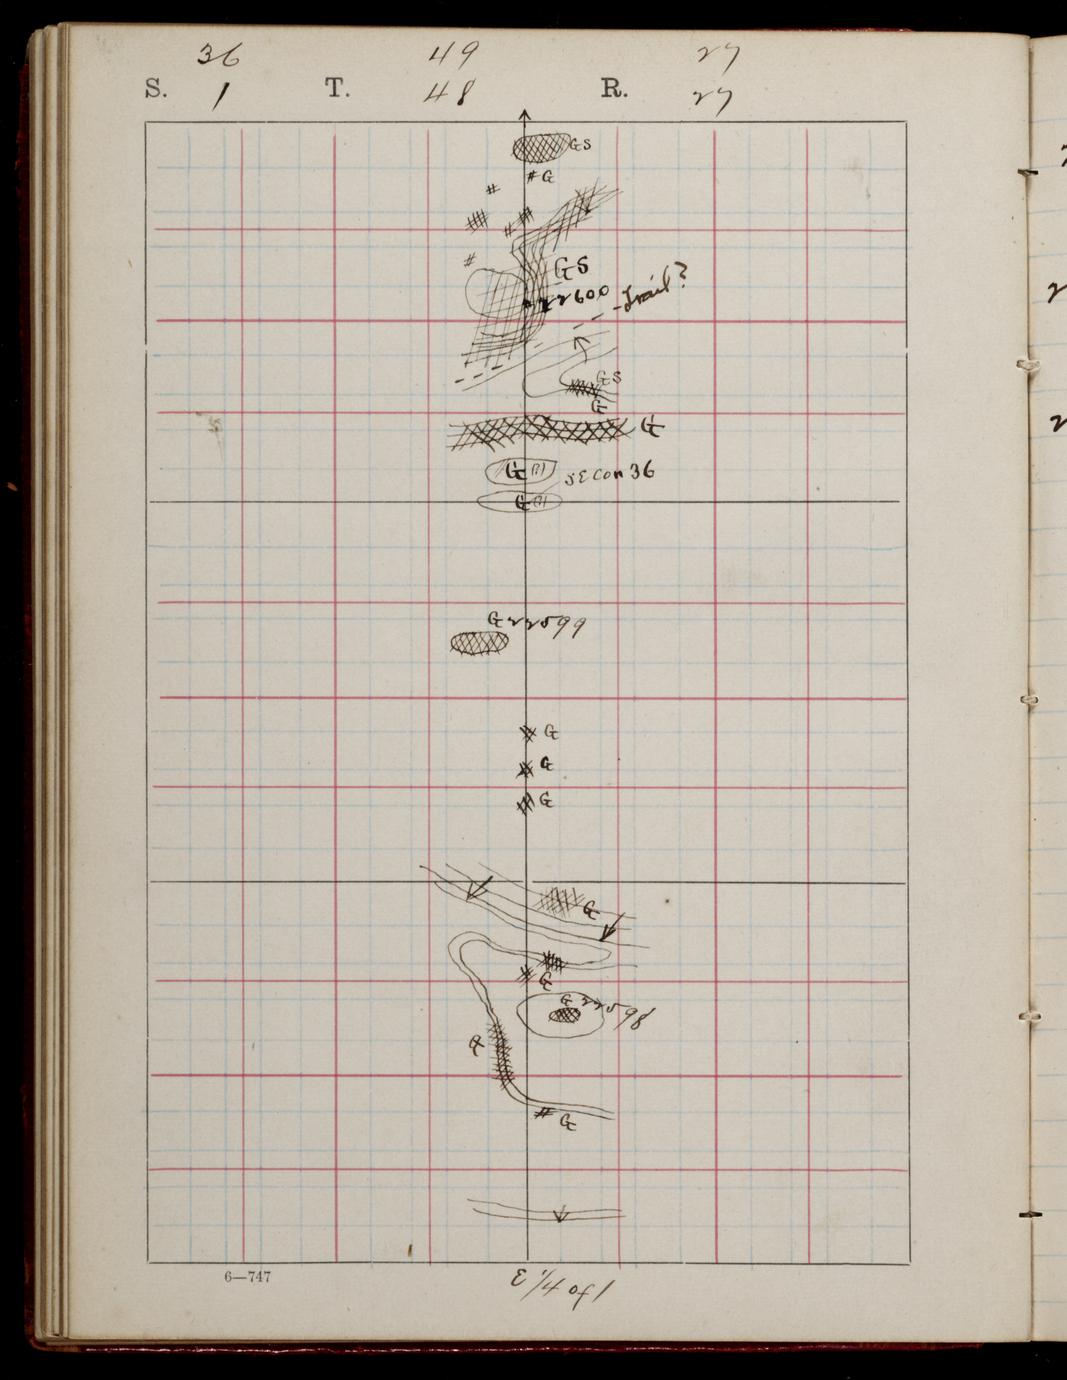 36 49 27
S. 1 T. 48 R. 27
GS
G
GS
22600
Trail?
GS
G
G
G (?)
SE Cor 36
G (?)
G 22599
G
G
G
G
G
G 22598
G
G
6—747
E 1/4 of 1